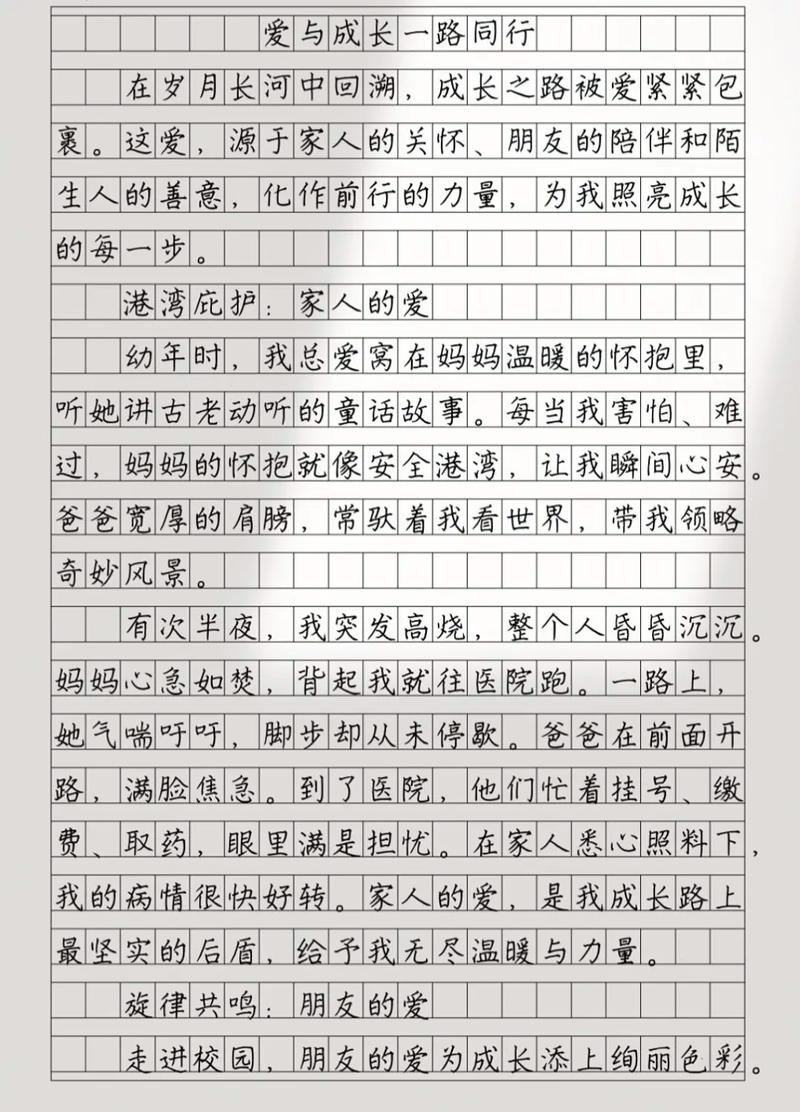 爱与成长一路同行
在岁月长河中回溯，成长之路被爱紧紧包
裹。这爱，源于家人的关怀、朋友的陪伴和陌
生人的善意，化作前行的力量，为我照亮成长
的每一步。
港湾庇护：家人的爱
幼年时，我总爱窝在妈妈温暖的怀抱里，
听她讲古老动听的童话故事。每当我害怕、难
过，妈妈的怀抱就像安全港湾，让我瞬间心安。
爸爸宽厚的肩膀，常驮着我看世界，带我领略
奇妙风景。
有次半夜，我突发高烧，整个人昏昏沉沉。
妈妈心急如焚，背起我就往医院跑。一路上，
她气喘吁吁，脚步却从未停歇。爸爸在前面开
路，满脸焦急。到了医院，他们忙着挂号、缴
费、取药，眼里满是担忧。在家人悉心照料下，
我的病情很快好转。家人的爱，是我成长路上
最坚实的后盾，给予我无尽温暖与力量。
旋律共鸣：朋友的爱
走进校园，朋友的爱为成长添上绚丽色彩。